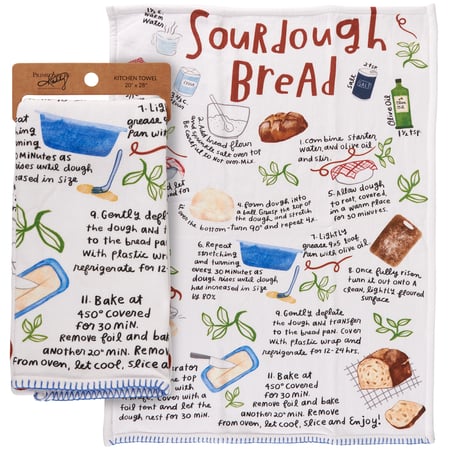 PRIMITIVES BY Kathy
KITCHEN TOWEL
20" x 28"
7. Lightly
grease 9
Pan with
30 Minutes as
does until dough
increased in Size
9. Gently deflate
the dough and tr
to the bread pan.
With plastic wrap
refrigerate for 12-
11. Bake at
450° Covered
for 30 min.
Remove foil and bake
another 20° Min. Remove
From oven, let cool, slice a
Sourdough
Bread
warm
Water
SALT
SALT
Olive Oil
1½ tsp
2. Add bread flour
and sprinkle salt over top
Be careful to Not over-Mix.
1. Combine starter,
water, and olive oil
and stir.
4. Form dough into
a ball. Grasp the top of
the dough, and stretch
the bottom - Turn 90° and repeat 4x.
5. Allow dough
to rest, covered,
in a warm place
for 30 minutes.
6. Repeat
stretching
and turning
every 30 minutes as
does until dough
has increased in size
by 80%
7. Lightly
grease 9x5 loaf
Pan with olive oil
8. Once fully risen,
turn it out onto a
clean, lightly floured
surface
9. Gently deflate
the dough and transfer
to the bread pan. Cover
with plastic wrap and
refrigerate for 12-24 hrs.
11. Bake at
450° covered
for 30 min.
Remove foil and bake
another 20° Min. Remove
From oven, let cool, slice and Enjoy!
erator
the top
with a
Cover with a
foil tent and let the
dough rest for 30 min.